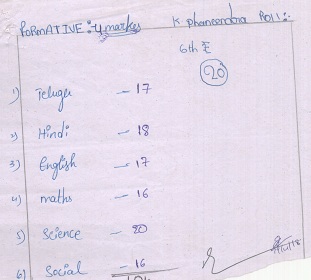 FORMATIVE :- 4 marks
K phaneendra Roll:-
6th E
20
1) Telugu - 17
2) Hindi - 18
3) English - 17
4) maths - 16
5) Science - 20
6) Social - 16